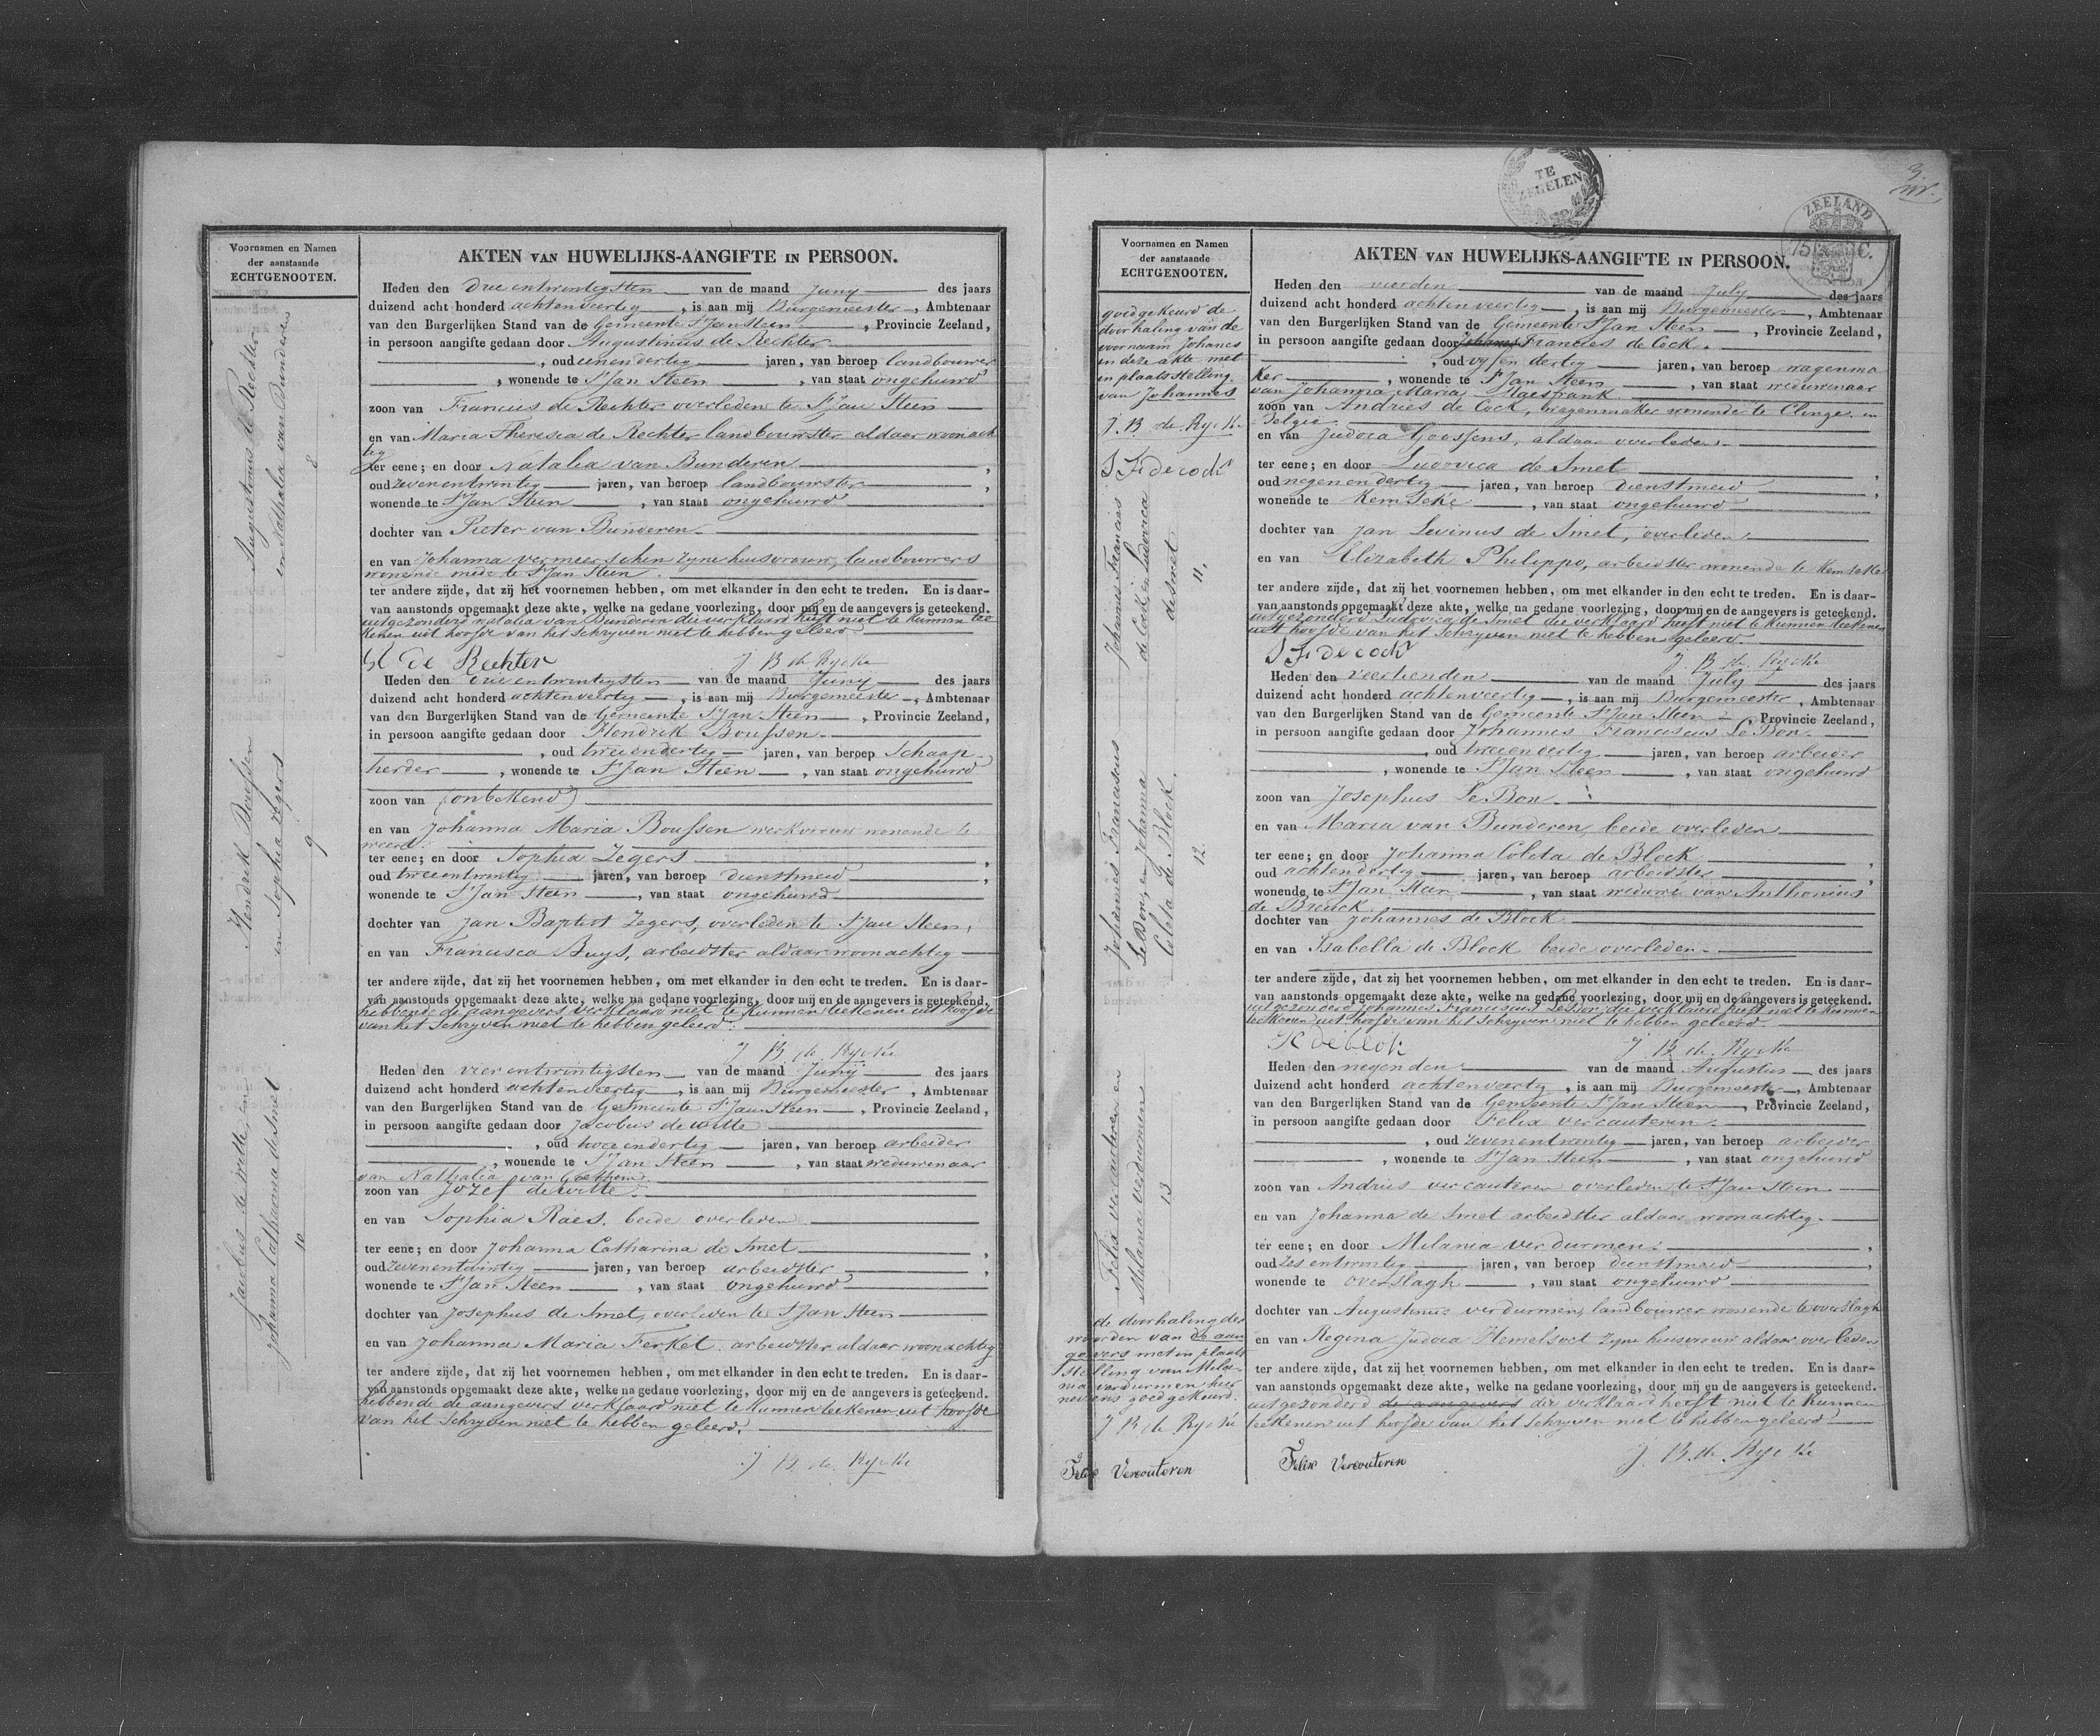 Voornamen en Namen
der aanstaande
ECHTGENOOTEN.
Augustinus de Rechter
en Nathalia van Bunderen
8
Hendrik Boussen
en Sophia Zegers
9
Jacobus de witte, en
Johanna Catharina de Smet
10
AKTEN VAN HUWELIJKS-AANGIFTE IN PERSOON.
Heden den Drie entwintigsten van de maand Junij des jaars
duizend acht honderd achtenveertig, is aan mij Burgemeester, Ambtenaar
van den Burgerlijken Stand van de Gemeente St Jan Steen, Provincie Zeeland,
in persoon aangifte gedaan door Augustinus de Rechter
, oud eenendertig jaren, van beroep landbouwer
, wonende te St Jan Steen, van staat ongehuwd
zoon van Francies de Rechter overleden te St Jan Steen
en van Maria Theresia de Rechter landbouwster aldaar woonach
tig
ter eene; en door Natalia van Bunderen,
oud zevenentwintig jaren, van beroep landbouwster,
wonende te St Jan Steen, van staat ongehuwd
dochter van Pieter van Bunderen
en van Johanna vermeerschen zyne huisvrouw, landbouwers
wonende mede te St Jan Steen.
ter andere zijde, dat zij het voornemen hebben, om met elkander in den echt te treden. En is daar-
van aanstonds opgemaakt deze akte, welke na gedane voorlezing, door mij en de aangevers is geteekend.
uitgezonderd natalia van Bunderen die verklaard heeft niet te kunnen tee
kenen uit hoofde van het schryven niet te hebben geleerd.
De Rechter J B de Rycke
Heden den drie entwintigsten van de maand Junij des jaars
duizend acht honderd achtenveertig, is aan mij Burgemeester, Ambtenaar
van den Burgerlijken Stand van de Gemeente St Jan Steen, Provincie Zeeland,
in persoon aangifte gedaan door Hendrik Boussen
, oud tweeendertig jaren, van beroep Schaap
herder, wonende te St Jan Steen, van staat ongehuwd
zoon van (onbekend)
en van Johanna Maria Boussen werkvrouw wonende te
weert.
ter eene; en door Sophia Zegers,
oud tweeentwintig jaren, van beroep dienstmeid,
wonende te St Jan Steen, van staat ongehuwd
dochter van Jan Baptist Zegers, overleden te St Jan Steen,
en van Francisca Buys, arbeidster aldaar woonachtig
ter andere zijde, dat zij het voornemen hebben, om met elkander in den echt te treden. En is daar-
van aanstonds opgemaakt deze akte, welke na gedane voorlezing, door mij en de aangevers is geteekend.
hebbende de aangevers verklaard niet te kunnen teekenen uit hoofde
van het schryven niet te hebben geleerd.
J B de Rycke
Heden den vier entwintigsten van de maand Junij des jaars
duizend acht honderd achtenveertig, is aan mij Burgemeester, Ambtenaar
van den Burgerlijken Stand van de Gemeente St Jan Steen, Provincie Zeeland,
in persoon aangifte gedaan door Jacobus de witte
, oud twee endertig jaren, van beroep arbeider
, wonende te St Jan Steen, van staat weduwenaar
van Nathalia van Goethem.
zoon van Jozef de witte.
en van Sophia Raes. beide overleden
ter eene; en door Johanna Catharina de Smet,
oud zevenentwintig jaren, van beroep arbeidster,
wonende te St Jan Steen, van staat ongehuwd
dochter van Josephus de Smet, overleden te St Jan Steen
en van Johanna Maria Ferket. arbeidster aldaar woonachtig
ter andere zijde, dat zij het voornemen hebben, om met elkander in den echt te treden. En is daar-
van aanstonds opgemaakt deze akte, welke na gedane voorlezing, door mij en de aangevers is geteekend.
hebbende de aangevers verklaard niet te kunnen teekenen uit hoofde
van het schryven niet te hebben geleerd.
J B de Rycke
TE
ZEGELEN
3.
ZEELAND
15 C.
Voornamen en Namen
der aanstaande
ECHTGENOOTEN.
goedgekeurd de
doorhaling van de
voornaam Johanes
in deze akte met
in plaatsstelling
van Johannes
J. B de Rycke
J F de cock
Johannis Francies
de Cock, en Ludovica
de Smet
11,
Johannes Franciscus
Le Bon, en Johanna
Coleta de Block.
12.
Felix vercauteren en
Melania verdurmen
13
de doorhaling der
woorden van de aan
gevers met in plaats
stelling van Mela-
nia verdurmen hier
nevens goedgekeurd.
J B de Rycke
Felix Vercouteren
AKTEN VAN HUWELIJKS-AANGIFTE IN PERSOON.
Heden den vierden van de maand July des jaars
duizend acht honderd achtenveertig, is aan mij Burgemeester, Ambtenaar
van den Burgerlijken Stand van de Gemeente St Jan Steen, Provincie Zeeland,
in persoon aangifte gedaan door Johanes Francies de Cock.
, oud vyf en dertig jaren, van beroep wagenma
ker, wonende te St Jan Steen, van staat weduwenaar
van Johanna Maria Maesfrank.
zoon van Andries de Cock, wagenmaker wonende te Clinge, in
Belgie
en van Judoca Goossens, aldaar overleden
ter eene; en door Ludovica de Smet,
oud negenendertig jaren, van beroep Dienstmeid,
wonende te Kemseke, van staat ongehuwd
dochter van Jan Levinus de Smet, overleden
en van Elizabeth Philippo, arbeidster wonende te Kemseke
ter andere zijde, dat zij het voornemen hebben, om met elkander in den echt te treden. En is daar-
van aanstonds opgemaakt deze akte, welke na gedane voorlezing, door mij en de aangevers is geteekend.
uitgezonderd Ludovica de Smet die verklaard heeft niet te kunnen teekenen
uit hoofde van het schryven niet te hebben geleerd.
J F de cock J. B de Rycke
Heden den veertienden van de maand July des jaars
duizend acht honderd achtenveertig, is aan mij Burgemeester, Ambtenaar
van den Burgerlijken Stand van de Gemeente St Jan Steen, Provincie Zeeland,
in persoon aangifte gedaan door Johannes Franciscus Le Bon
, oud tweeendertig jaren, van beroep arbeider
, wonende te St Jan Steen, van staat ongehuwd
zoon van Josephus Le Bon.
en van Maria van Bunderen, beide overleden
ter eene; en door Johanna Coleta de Block,
oud achtendertig jaren, van beroep arbeidster,
wonende te St Jan Steen, van staat weduwe van Anthonius
de Breuck.
dochter van Johannes de Block
en van Isabella de Block beide overleden
ter andere zijde, dat zij het voornemen hebben, om met elkander in den echt te treden. En is daar-
van aanstonds opgemaakt deze akte, welke na gedane voorlezing, door mij en de aangevers is geteekend.
uitgezonderd Johannes Franciscus Le Bon, die verklaard heeft niet te kunnen
teekenen uit hoofde van het schryven niet te hebben geleerd.
deblok J. B de Rycke
Heden den negenden van de maand Augustus des jaars
duizend acht honderd achtenveertig, is aan mij Burgemeester, Ambtenaar
van den Burgerlijken Stand van de Gemeente St Jan Steen, Provincie Zeeland,
in persoon aangifte gedaan door Felix vercauteren.
, oud zevenentwintig jaren, van beroep arbeider
, wonende te St Jan Steen, van staat ongehuwd
zoon van Andries vercauteren overleden te St Jan Steen
en van Johanna de Smet arbeidster aldaar woonachtig.
ter eene; en door Milania verdurmen.,
oud zes entwintig jaren, van beroep dienstmeid,
wonende te overslagh, van staat ongehuwd
dochter van Augustinus verdurmen, landbouwer wonende te overslagh
en van Regina Judoca Hemelsoet zyne huisvrouw aldaar overleden
ter andere zijde, dat zij het voornemen hebben, om met elkander in den echt te treden. En is daar-
van aanstonds opgemaakt deze akte, welke na gedane voorlezing, door mij en de aangevers is geteekend.
uitgezonderd de aangevers die verklaard heeft niet te kunnen
teekenen uit hoofde van het schryven niet te hebben geleerd
Felix Vercouteren J. B de Rycke